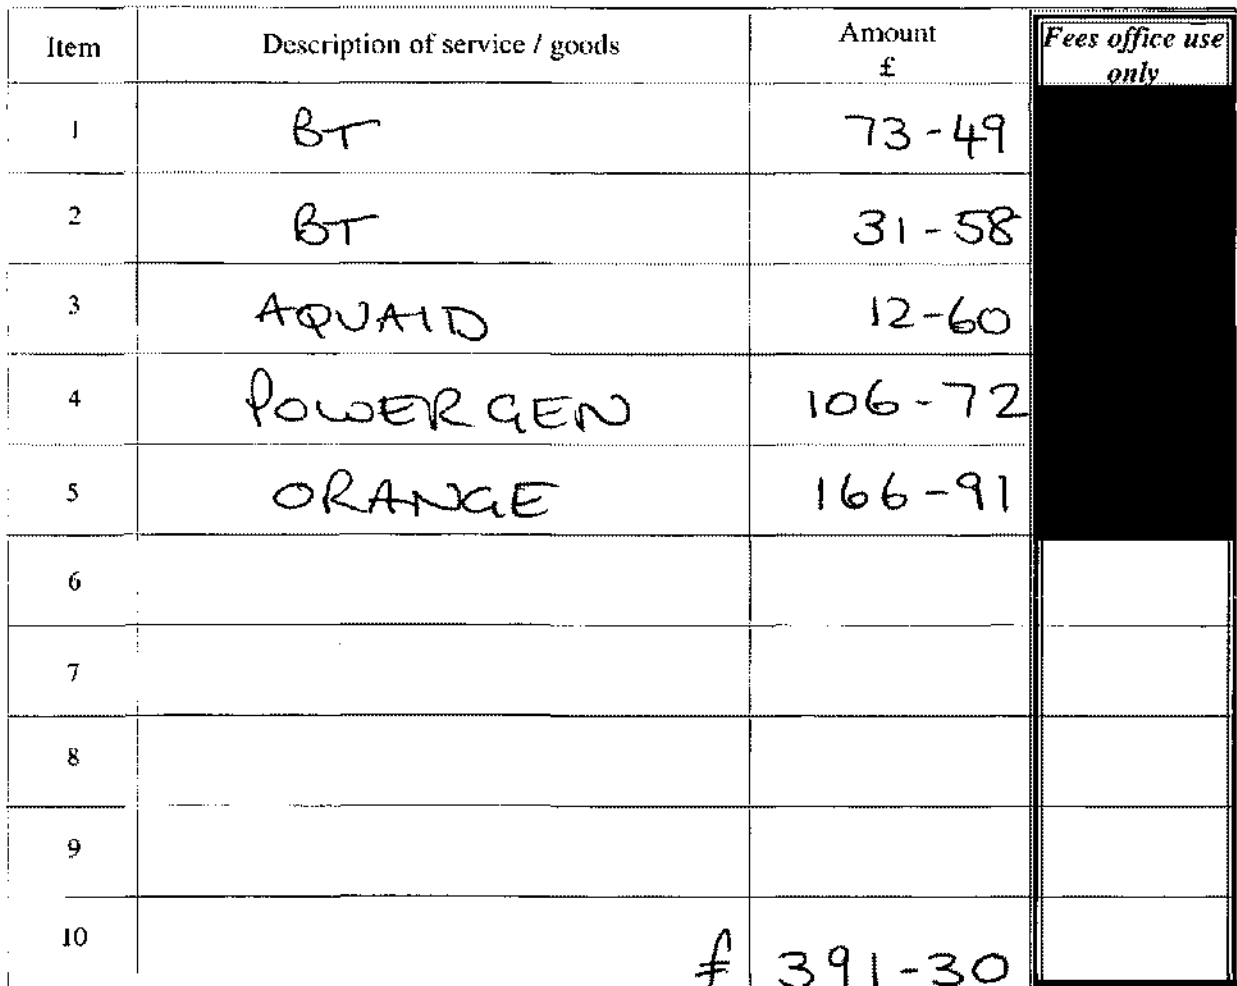 Item Description of service / goods Amount £ Fees office use only
1 BT 73-49
2 BT 31-58
3 AQUAID 12-60
4 POWERGEN 106-72
5 ORANGE 166-91
6
7
8
9
10 £ 391-30